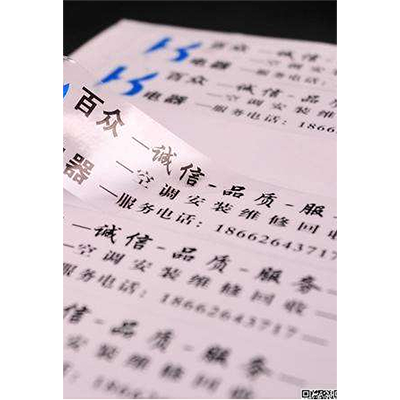 百众 —诚信-品
电器 —空调安装
—服务电话:
百众 —诚信-品质
电器 —空调安装维
—服务电话:1866
百众 —诚信-品质-服
器 —空调安装维修回收
—服务电话:18662643717
—诚信-品质-服务—
—空调安装维修回收—
—服务电话:18662643717—
-品质-服务—
安装维修回收—
18662643717—